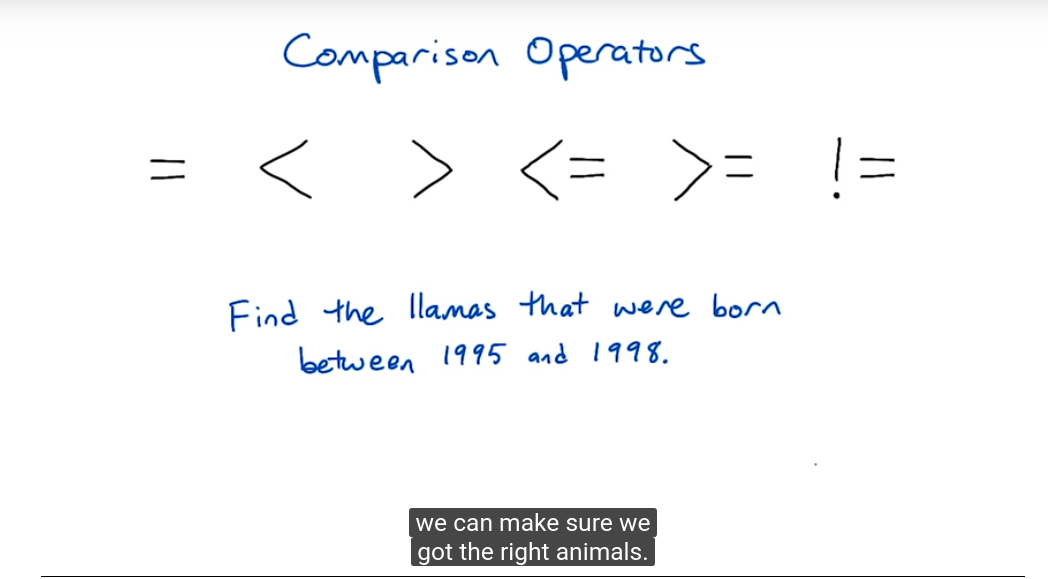 Comparison Operators
= < > <= >= !=
Find the llamas that were born
between 1995 and 1998.
we can make sure we
got the right animals.